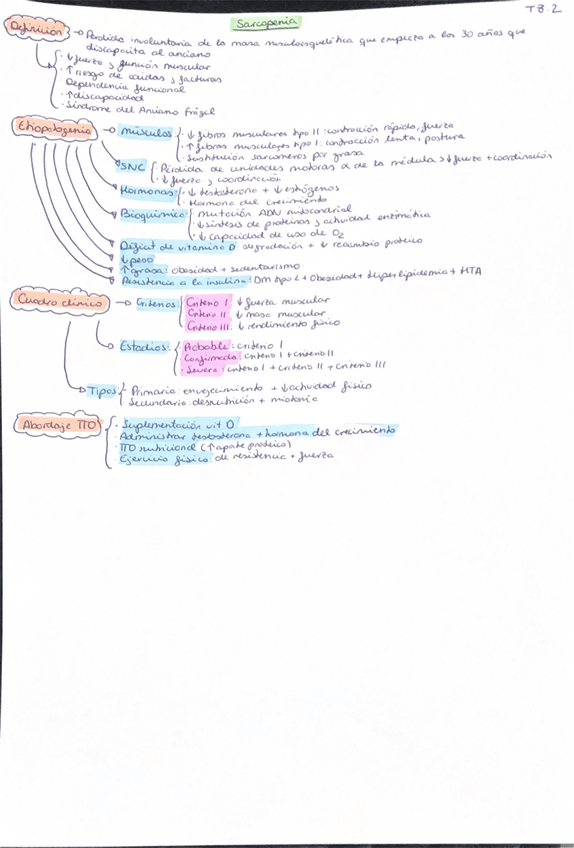 T3.2
Sarcopenia
Definición → Perdida involuntaria de la masa musculoesquelética que empieza a los 30 años que
discapacita al anciano
· ↓ fuerza y función muscular
· ↑ riesgo de caidas y fracturas
Dependencia funcional
· ↑ discapacidad
· Síndrome del Anciano frágil
Etiopatogenia → Músculos · ↓ fibras musculares tipo II: contracción rápida, fuerza
· ↑ fibras musculares tipo I: contracción lenta, postura
· Sustitución sarcomeros por grasa
SNC · Pérdida de unidades motoras α de la médula → ↓ fuerza + coordinación
· ↓ fuerza y coordinación
Hormonas: · ↓ testosterona + ↓ estrógenos
· Hormona del crecimiento
Bioquímica: · mutación ADN mitocondrial
· ↓ síntesis de proteínas y actividad enzimática
· ↓ capacidad de uso de O2
Déficit de vitamina D: degradación + ↓ recambio proteico
↓ peso
↑ grasa: obesidad + sedentarismo
Resistencia a la insulina: DM tipo 2 + Obesidad + Hiperlipidemia + HTA
Cuadro clínico → Criterios: Criterio I: ↓ fuerza muscular
Criterio II: ↓ masa muscular
Criterio III: ↓ rendimiento físico
Estadios: · Probable: criterio I
Confirmada: criterio I + criterio II
· Severa: criterio I + criterio II + criterio III
Tipos · Primaria: envejecimiento + ↓ actividad física
· Secundaria: desnutrición + miotonia
Abordaje TTO · Suplementación vit. D
· Administrar testosterona + hormona del crecimiento
· TTO nutricional (↑ aporte proteico)
Ejercicio físico: de resistencia + fuerza